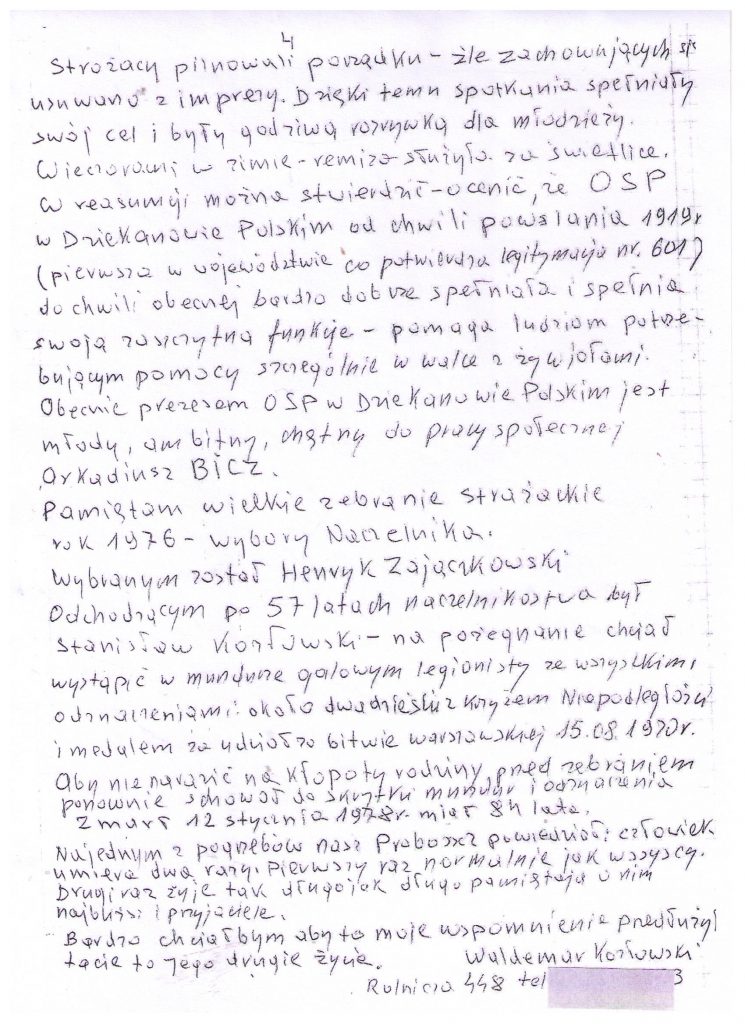 4
Strożacy pilnowali porządku - źle zachowujących się
usuwano z imprezy. Dzięki temu spotkania spełniały
swój cel i były godziwą rozrywką dla młodzieży.
Wieczorami w zimie - remiza służyła za świetlicę.
W reasumuji można stwierdzić - ocenić, że OSP
w Dziekanowie Polskim od chwili powstania 1919r
(pierwsza w województwie co potwierdza legitymacja nr. 601)
do chwili obecnej bardzo dobrze spełniała i spełnia
swoją zaszczytną funkcje - pomaga ludziom potrze-
bującym pomocy szczególnie w walce z żywiołami.
Obecnie prezesem OSP w Dziekanowie Polskim jest
młody, ambitny, chętny do pracy społecznej
Arkadiusz BICZ.
Pamiętam wielkie zebranie strażackie
rok 1976 - wybory Naczelnika.
Wybranym został Henryk Zajączkowski
Odchodzącym po 57 latach naczelnikostwa był
Stanisław Kozłowski - na pożegnanie chciał
wystąpić w mundurze galowym legionisty ze wszystkimi
odznaczeniami: około dwadzieścia z krzyżem Niepodległości
i medalem za udział w bitwie warszawskiej 15.08.1920r.
Aby nie narazić na kłopoty rodziny przed zebraniem
ponownie schował do skrytki mundur i odznaczenia
Zmarł 12 stycznia 1978r. miał 84 lata.
Na jednym z pogrzebów nasz Proboszcz powiedział: człowiek
umiera dwa razy. Pierwszy raz normalnie jak wszyscy.
Drugi raz żyje tak długo jak długo pamiętają o nim
najbliżsi i przyjaciele.
Bardzo chciałbym aby to moje wspomnienie przedłużył
tacie to Jego drugie życie. Waldemar Kozłowski
Rolnicza 448 tel 3